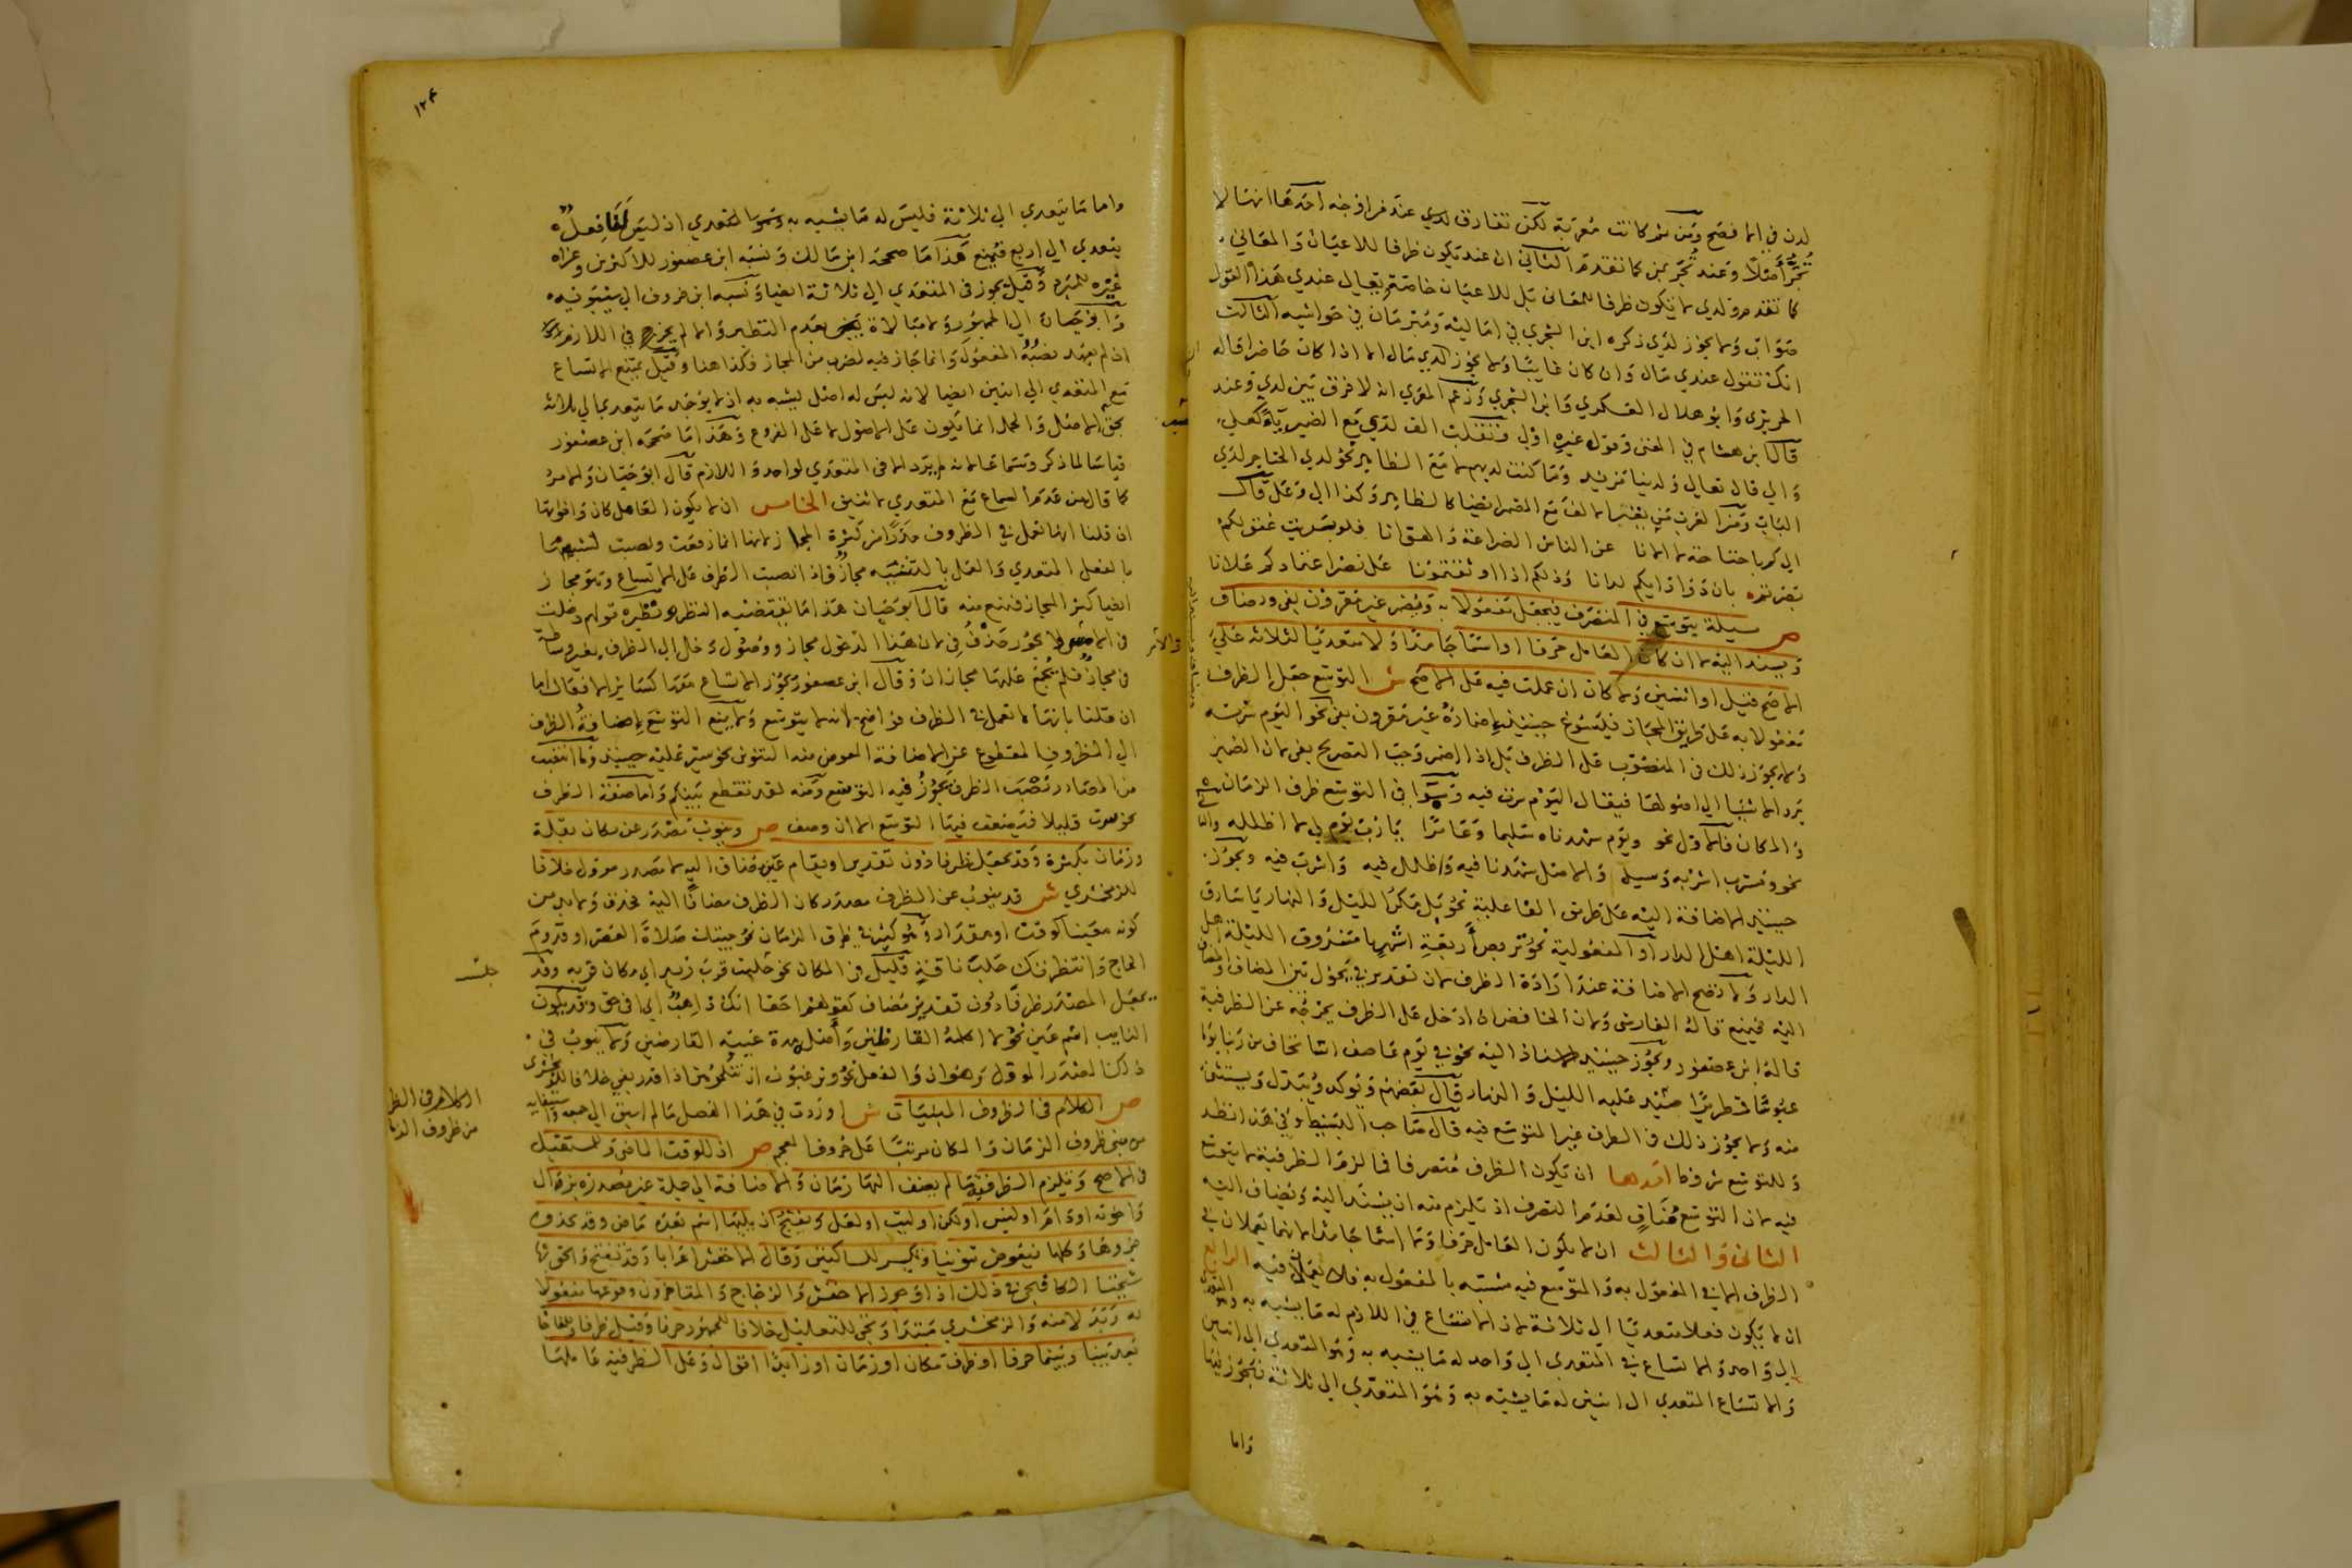 لدن في الافصح ومن ثم كانت معربة لكن تفارق لدي عند من اوجه احدها انها لا
تجر أصلا وعند تجر بمن كما تقدم الثاني ان عند تكون ظرفا للاعيان والمعاني
كما تقدم ولدي لا تكون ظرفا للمعاني بل للاعيان خاصة يقال عندي هذا القول
صواب ولا يجوز لدي ذكره ابن الشجري في اماليه ومبرمان في حواشيه الثالث
انك تقول عندي مال وان كان غائبا ولا يجوز لدي مال الا اذا كان حاضرا قاله
الحريري وابو هلال العسكري وابن الشجري وزعم المعري انه لا فرق بين لدي وعند
قال ابن هشام في المغني وقول غيره اولى وتقلب الف لدي مع الضمير ياء كعلى
والى قال تعالى ولدينا مزيد وما كنت لديهم لا مع الظاهر نحو لدي الحناجر لدي
الباب ومن العرب من يقر الالف مع المضمر ايضا كالظاهر وكذا الى وعلى قال
الى كم يا خناعة لا الانا عن الناس الضراعة والهوانا فلو بدت عقولكم
بصرتم بان دواء دائكم لدانا وذلكم اذا اوثقتمونا على نصر اعتمادكم علانا
ص مسئلة يتوسع في المتصرف فيجعل مفعولا به ويضمر غير مقرون بفي ويضاف
ويسند اليه لا ان كان العامل حرفا او اسما جامدا ولا متعديا لثلاثة على
الاصح قيل او اثنين ولا كان ان عملت فيه على الاصح ش التوسع جعل الظرف
مفعولا به على طريق المجاز فيسوغ حينئذ اضماره غير مقرون بفي نحو اليوم سرته
ولا يجوز ذلك في المنصوب على الظرف بل اذا اضمر وجب التصريح بفي لان الضمير
يرد الاشياء الى اصولها فيقال اليوم سرت فيه وسوا في التوسع ظرف الزمان
والمكان فالاول نحو ويوم شهدناه سليما وعامرا يا رب يوم لي لا اظلله والثاني
نحو ومشرب اشربه وسيل والاصل شهدنا فيه واظلل فيه واشرب فيه ويجوز
حينئذ الاضافة اليه على طريق الفاعلية نحو بل مكر الليل والنهار يا سارق
الليلة اهل الدار او المفعولية نحو تربص أربعة اشهر يا مسروق الليلة اهل
الدار ولا تصح الاضافة عند ارادة الظرف لان تقدير في يحول بين المضاف والمضاف
اليه فيمتنع قاله الفارسي ولان الخافض اذا دخل على الظرف يخرجه عن الظرفية
قاله ابن عصفور ويجوز حينئذ الاسناد اليه نحو في يوم عاصف انا نخاف من ربنا يوما
عبوسا قمطريرا صيد عليه الليل والنهار قال بعضهم ويوكد ويبدل ويستثنى
منه ولا يجوز ذلك في الظرف غير المتوسع فيه قال صاحب البسيط وفي هذا نظر
وللتوسع شروط احدها ان يكون الظرف متصرفا فما لزم الظرفية لا يتوسع
فيه لان التوسع مناف لعدم التصرف اذ يلزم منه ان يسند اليه ويضاف اليه
الثاني والثالث ان لا يكون العامل حرفا ولا اسما جامدا لانهما يعملان في
الظرف لا في المفعول به والمتوسع فيه مشبه بالمفعول به فلا يعملان فيه الرابع
ان لا يكون فعلا متعديا الى ثلاثة لان الاتساع في اللازم له ما يشبه به وهو المتعدي
الى واحد والاتساع في المتعدي الى واحد له ما يشبه به وهو المتعدي الى اثنين
والاتساع المتعدي الى اثنين له ما يشبه به وهو المتعدي الى ثلاثة فيجوز فيها
واما
١٢٤
واما ما يتعدي الى ثلاثة فليس له ما يشبه به وهو المتعدي اذ ليس لنا فعل
يتعدي الى اربع فيمنع هذا ما صححه ابن مالك ونسبه ابن عصفور للاكثرين وعزاه
غيره للمبرد وقيل يجوز في المتعدي الى ثلاثة ايضا ونسبه ابن خروف الى سيبويه
وابو حيان الى الجمهور ولا مبالاة بعدم النظير والا لم يجز في اللازم
اذ لم يعهد نصبه المفعول وانما جاز فيه لضرب من المجاز فكذا هنا وقيل يمتنع الاتساع
مع المتعدي الى اثنين ايضا لانه ليس له اصل يشبه به اذ لا يوجد ما يتعدي الى ثلاثة
بحق الاصل والحمل انما يكون على الاصول لا على الفروع وهذا ما صححه ابن عصفور
قياسا لما ذكر وسماعا لانه لم يرد الا في المتعدي لواحد واللازم قال ابو حيان والامر
كما قال من عدم السماع مع المتعدي لاثنين الخامس ان لا يكون العامل كان واخواتها
ان قلنا انها تعمل في الظروف حذرا من كثرة المجاز لانها انما رفعت ونصبت لشبهها
بالفعل المتعدي والعمل بالتشبيه مجاز فاذا نصبت الظرف على الاتساع وهو مجاز
ايضا كثر المجاز فيمنع منه قال ابو حيان هذا ما يقتضيه النظر ونظيره قولهم دخلت
في الامر لا يجوز حذف في لان هذا الدخول مجاز ووصول دخل الى الظرف بغير وساطة
في مجاز فلم يجمع عليها مجازان وقال ابن عصفور يجوز الاتساع معها كسائر الافعال اما
ان قلنا بانها لا تعمل في الظرف فواضح لانه لا يتوسع ولا يمنع التوسع اضافة الظرف
الى المظروف المقطوع عن الاضافة المعوض منه التنوين نحو سير عليه حينئذ وما انتصب
من المصادر نصب الظرف يجوز فيه التوسع ومنه لقد تقطع بينكم واما صفة الظرف
نحو سرت قليلا فيضعف فيها التوسع الا ان وصف ص وينوب مصدر عن مكان بقلة
وزمان بكثرة وقد يجعل ظرفا دون تقدير او يقام عين مضاف اليه لا مصدر مؤول خلافا
للزمخشري ش قد ينوب عن الظرف مصدر كان الظرف مضافا اليه فحذف ولا بد من
كونه معينا لوقت او مقدار وهو كثير في ظرف الزمان نحو جيتك صلاة العصر او قدوم
الحاج وانتظرتك حلب ناقة قليل في المكان نحو جلست قرب زيد اي مكان قربه وقد
جلست
يجعل المصدر ظرفا دون تقدير مضاف كقولهم احقا انك ذاهب اي افي حق وقد يكون
النايب اسم عين نحو لا اكلمه القارظين وأصله مدة غيبة القارظين ولا ينوب في
ذلك المصدر المؤول وهو ان والفعل نحو وترغبون ان تنكحوهن اذا قدر بفي خلافا للزمخشري
ص الكلام في الظروف المبنيات ش اوردت في هذا الفصل ما لم اسبق الى جمعه واستيفائه
الكلام في الظر
من ظروف الزما
من مبني ظروف الزمان والمكان مرتبا على حروف المعجم ص اذ للوقت الماضي وللمستقبل
في الاصح وتلزم الظرفية ما لم يضف اليها زمان والاضافة الى جملة غير مصدرة بزال
واخوته او دام او ليس او لكن او ليت او لعل ويقبح ان يليها اسم بعده ماض وقد يحذف
جزوها وكلها فيعوض تنوينا ويكسر للساكنين وقال الاخفش اعرابا وقد تفتح والحق بها
شيخنا الكافيجي في ذلك اذا وجوز الاخفش والزجاج والمتاخرون وقوعها مفعولا
به وبدلا منه والزمخشري مبتدا وتجي للتعليل خلافا للجمهور حرفا وقيل ظرفا وللمفاجاة
بعد بينا وبينما حرفا او ظرف مكان او زمان او زايدا اقوال وعلى الظرفية عاملها